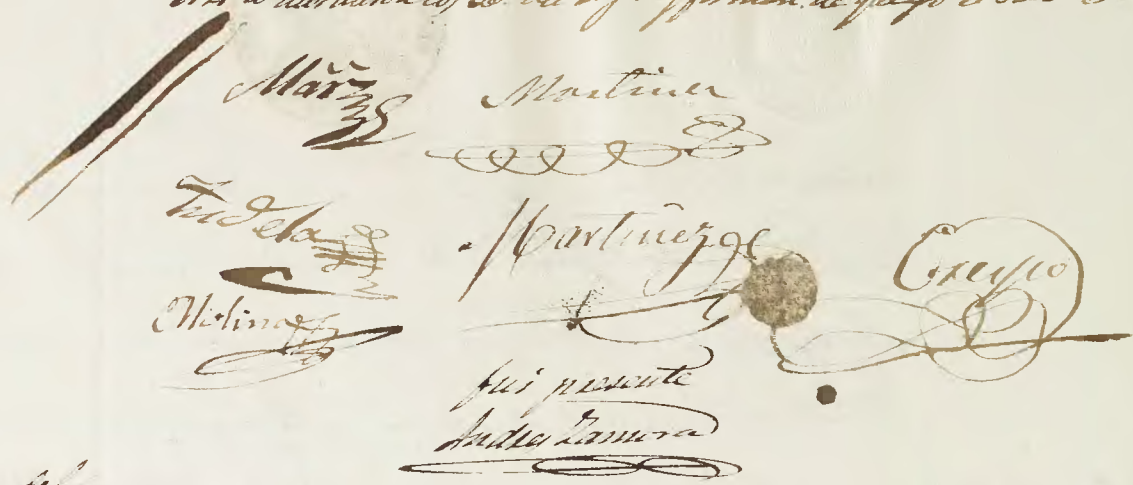 firman de que yo el
Marz Martinez
Tudela Martinez Crespo
Molina
fui presente
Andres Zamora